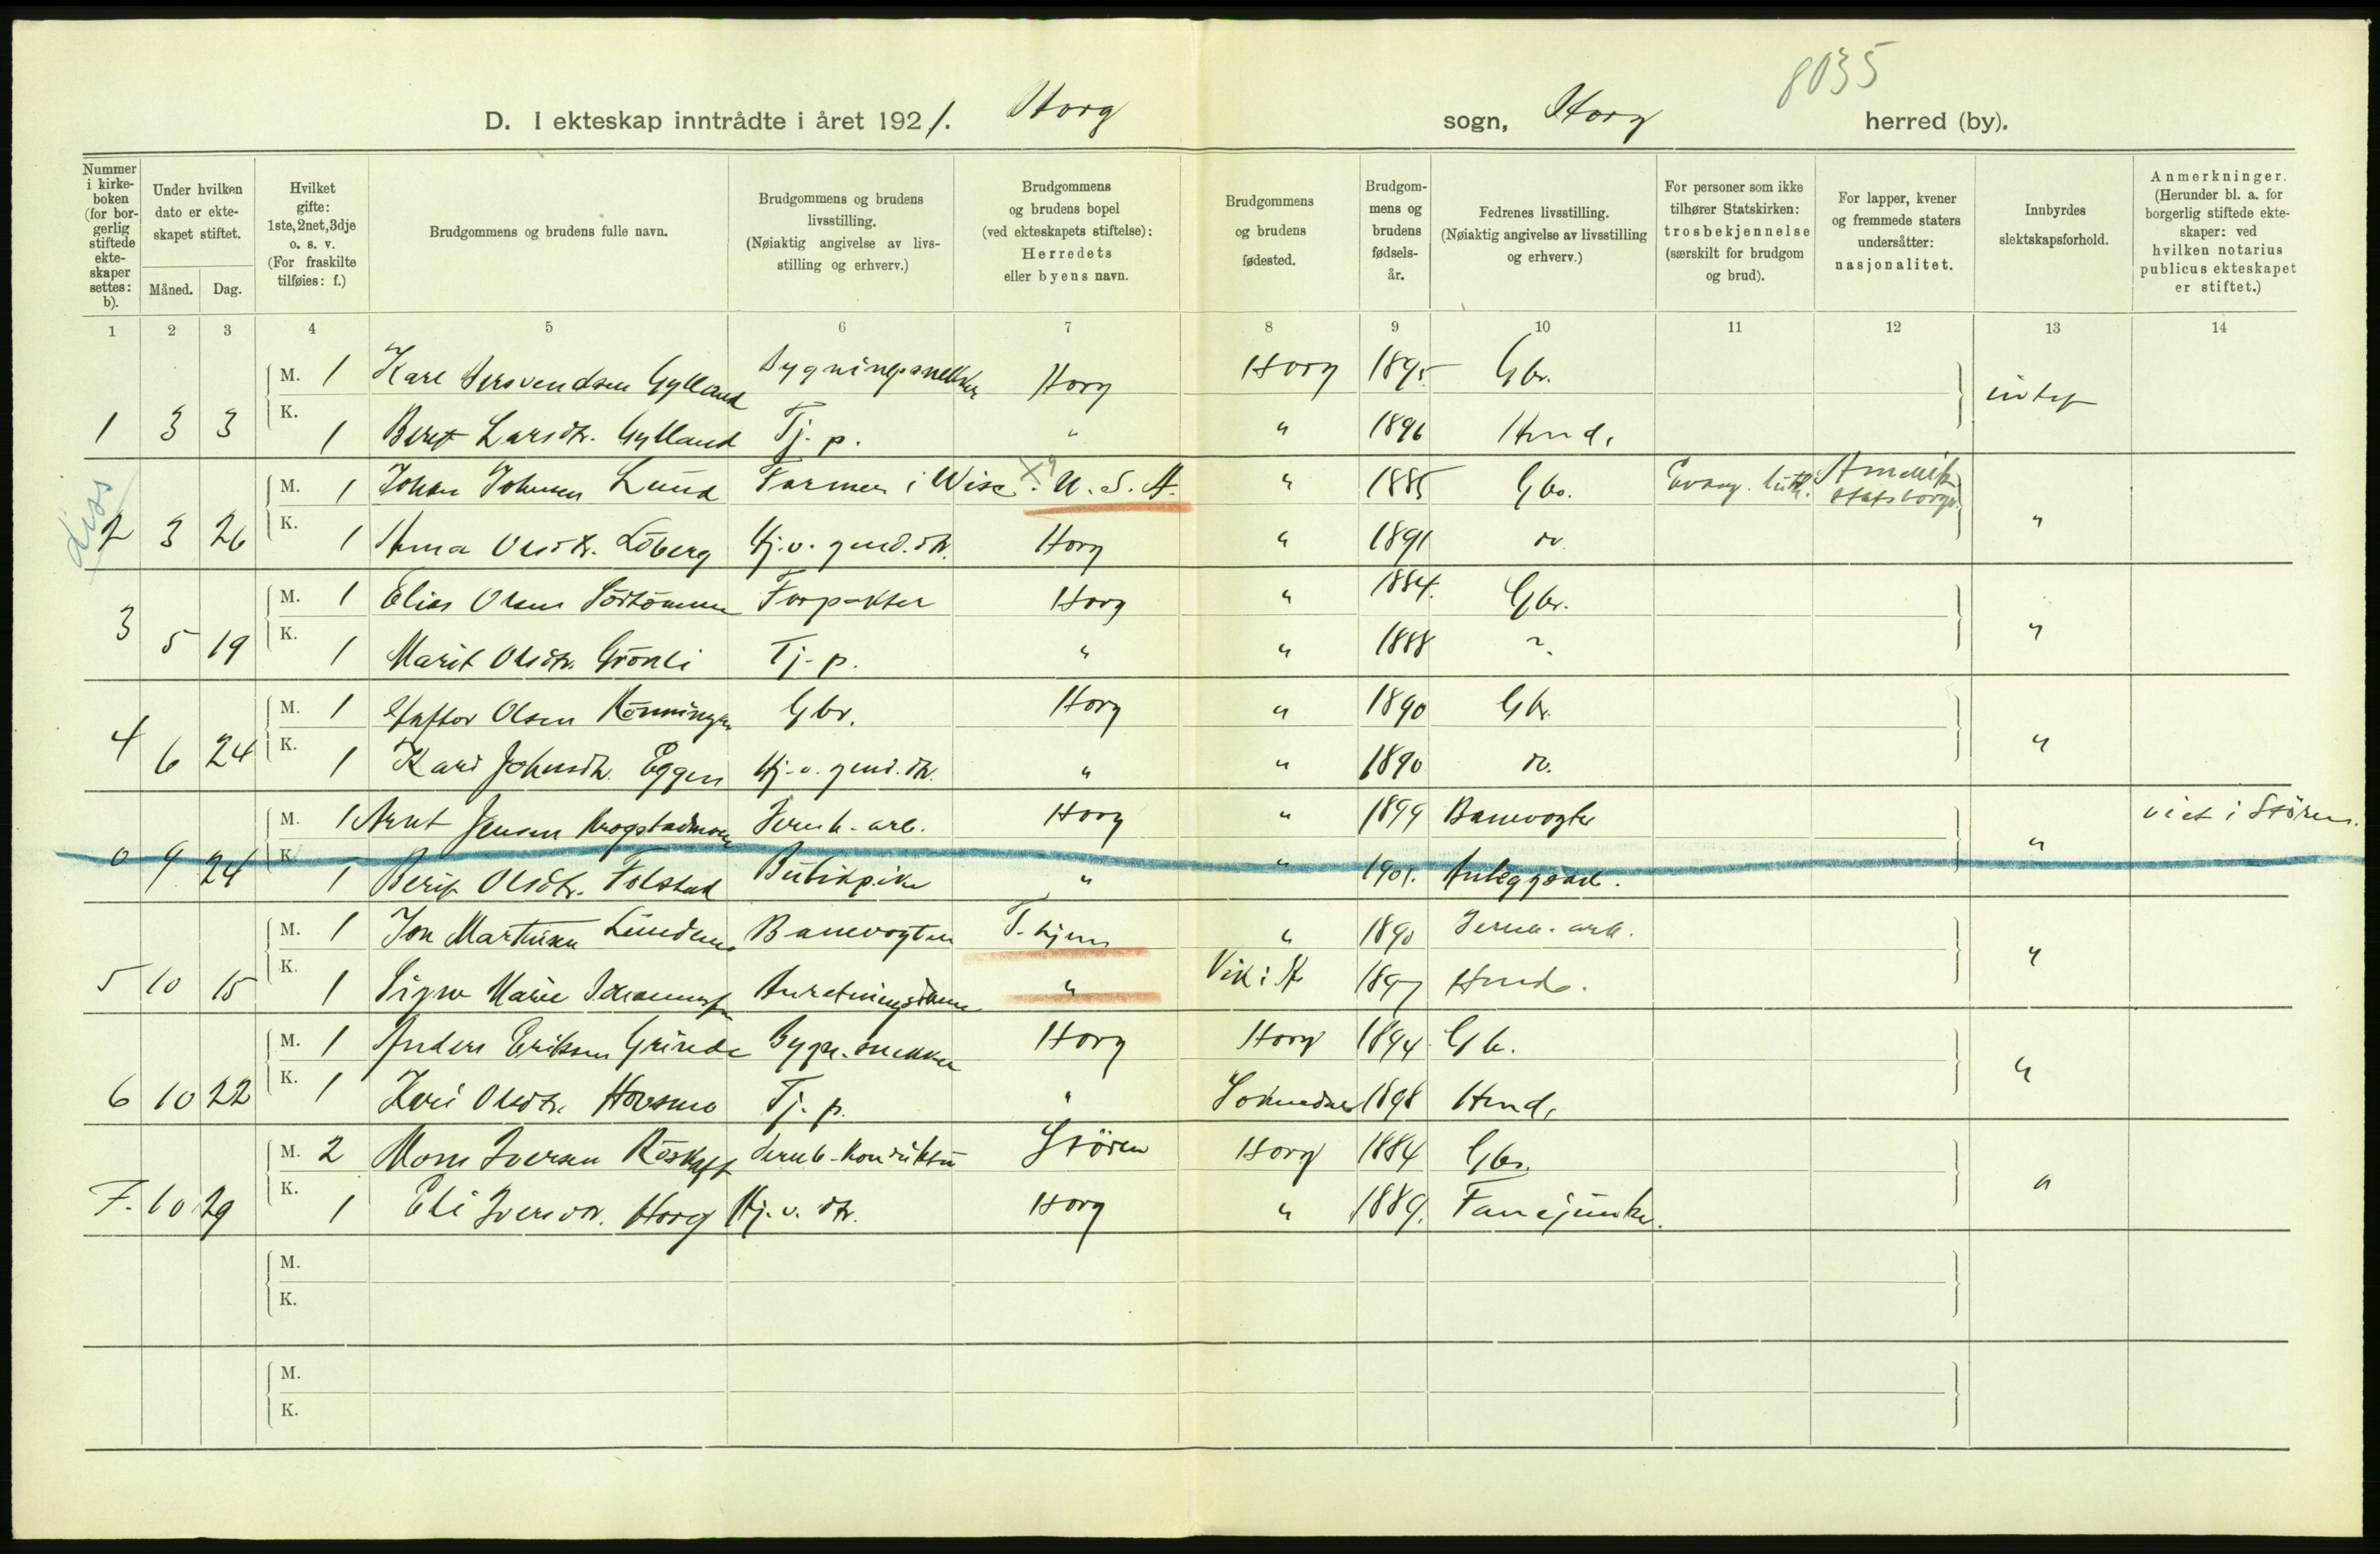 8035
D. I ekteskap inntrådte i året 1921. Horg sogn, Horg herred (by).
Nummer i kirkeboken (for borgerlig stiftede ekteskaper settes: b).
Under hvilken dato er ekteskapet stiftet.
Måned. Dag.
Hvilket gifte: 1ste, 2net, 3dje o. s. v. (For fraskilte tilføies: f.)
Brudgommens og brudens fulle navn.
Brudgommens og brudens livsstilling. (Nøiaktig angivelse av livsstilling og erhverv.)
Brudgommens og brudens bopel (ved ekteskapets stiftelse): Herredets eller byens navn.
Brudgommens og brudens fødested.
Brudgommens og brudens fødselsår.
Fedrenes livsstilling. (Nøiaktig angivelse av livsstilling og erhverv.)
For personer som ikke tilhører Statskirken: trosbekjennelse (særskilt for brudgom og brud).
For lapper, kvener og fremmede staters undersåtter: nasjonalitet.
Innbyrdes slektskapsforhold.
Anmerkninger. (Herunder bl. a. for borgerlig stiftede ekteskaper: ved hvilken notarius publicus ekteskapet er stiftet.)
1 2 3 4 5 6 7 8 9 10 11 12 13 14
M. 1 Karl Gylland Bygningssnekker Horg Horg 1895 Gbr.
1 3 3 K. 1 Berit Larsdtr. Gylland Tj. p. " " 1896 Hmd. intet
diss
M. 1 Johan Johnsen Lund Farmer i Wisc. U. S. A. " 1885 Gbr. Evang. luth. Amerik. statsborger
2 3 26 K. 1 Anna Olsdtr. Löberg Hj. v. gmd. dtr. Horg " 1891 do. "
M. 1 Elias Olsen Forpakter Horg " 1884. Gbr.
3 5 19 K. 1 Marit Olsdtr. Grönli Tj. p. " " 1888 "
M. 1 Haftor Olsen Rönningen Gbr. Horg " 1890 Gbr.
4 6 24 K. 1 Kari Johnsdtr. Eggen Hj. v. gmd. dtr. " " 1890 do. "
M. 1 Arnt Jensen Krogstadmoen Jernb. arb. Horg " 1899 Banevogter viet i Stören.
0 9 24 K. 1 Berit Olsdtr. Folstad Butikpike " " 1901. Anleggsarb. "
M. 1 Jon Martinsen Lundemo Banevogter T. hjem " 1890 Jernb. arb.
5 10 15 K. 1 Signe Marie Anretningsdame " Vik i 1897 Hmd. "
M. 1 Anders Eriksen Grinde Bygn. snekker Horg Horg 1894 Gb.
6 10 22 K. 1 Kari Olsdtr. Hovsmo Tj. p. " Soknedal 1898 Hmd. "
M. 2 Mons Iversen Röskaft Jernb. konduktör Stören Horg 1884 Gbr.
7. 10 29 K. 1 Eli Iversdtr. Horg Hj. v. dtr. Horg " 1889. Fanejunker. "
M.
K.
M.
K.